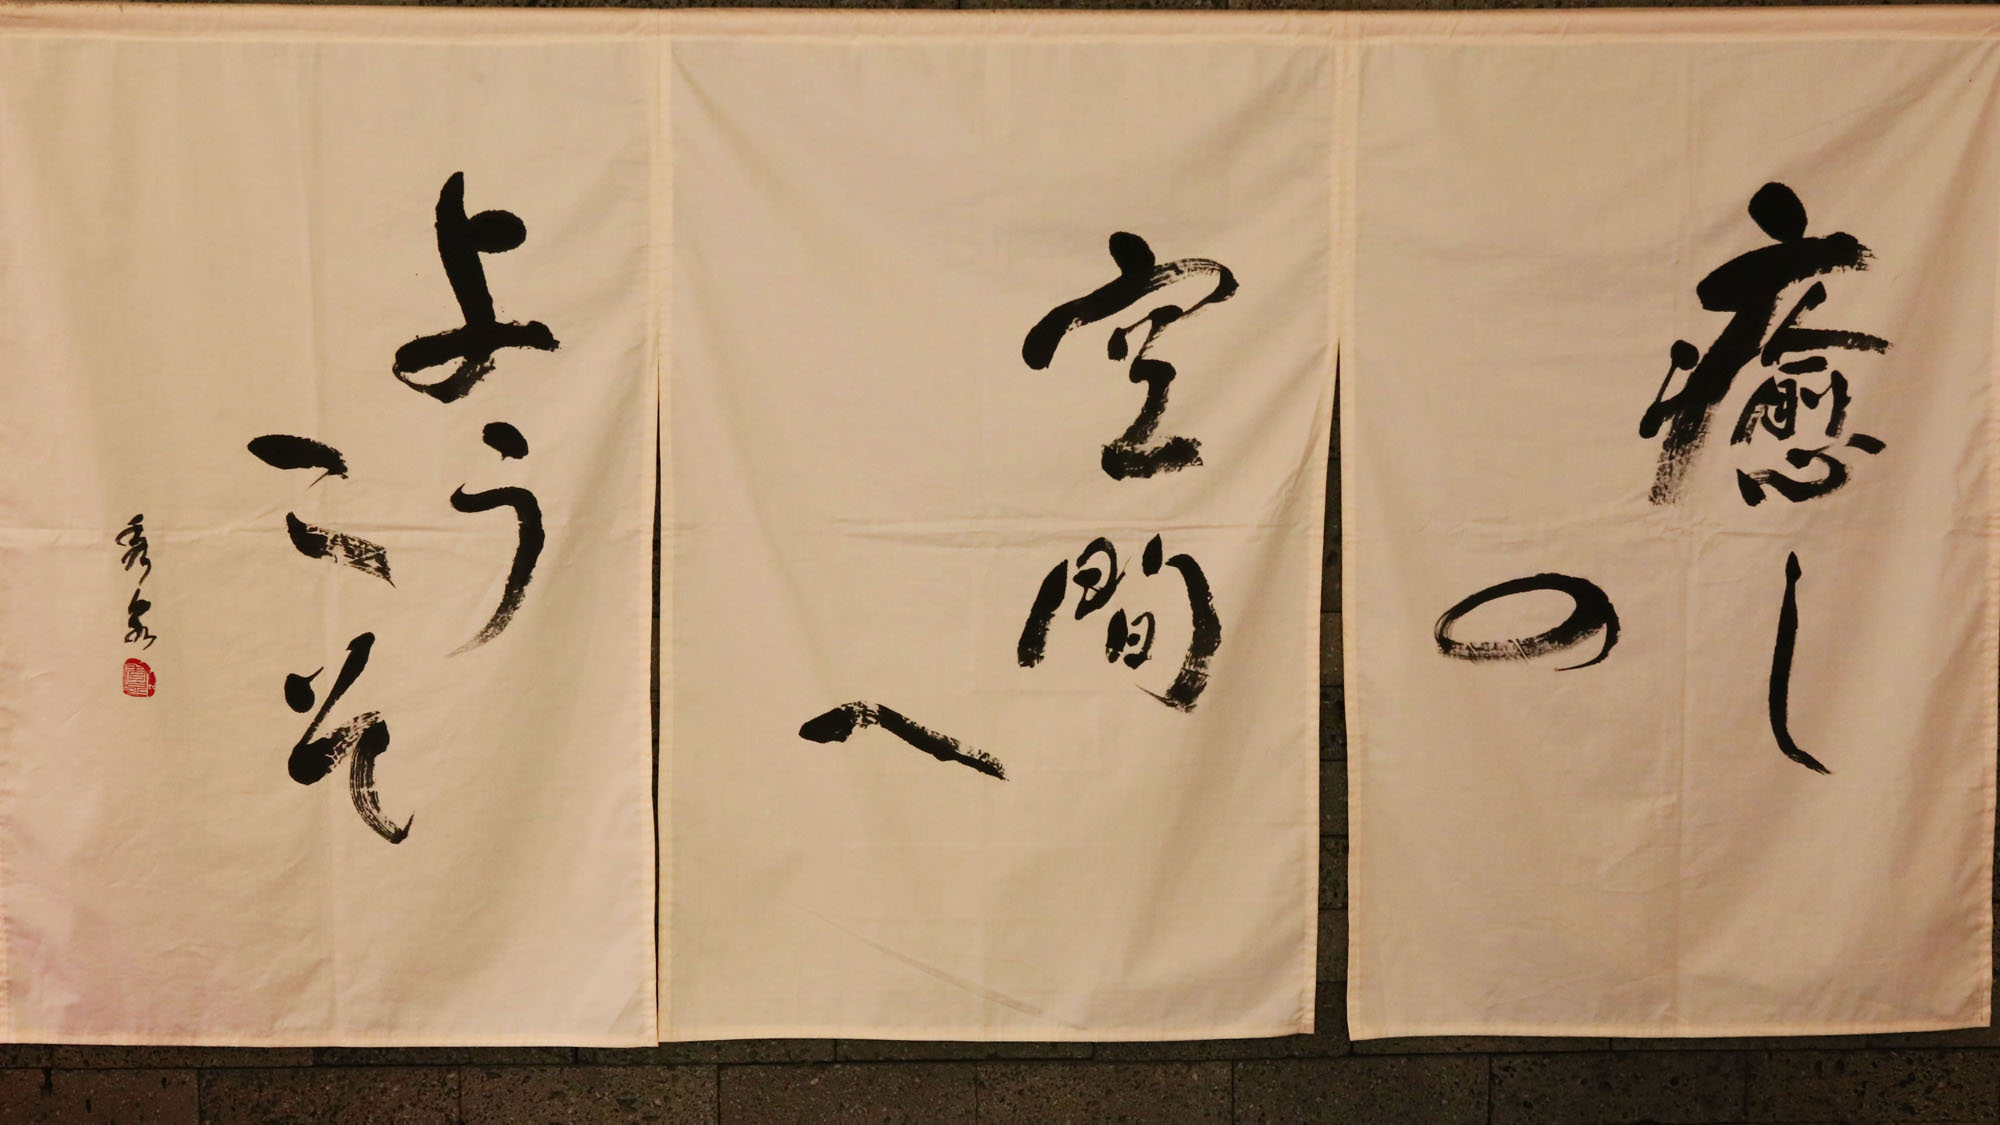 癒しの
空間へ
ようこそ
秀泉